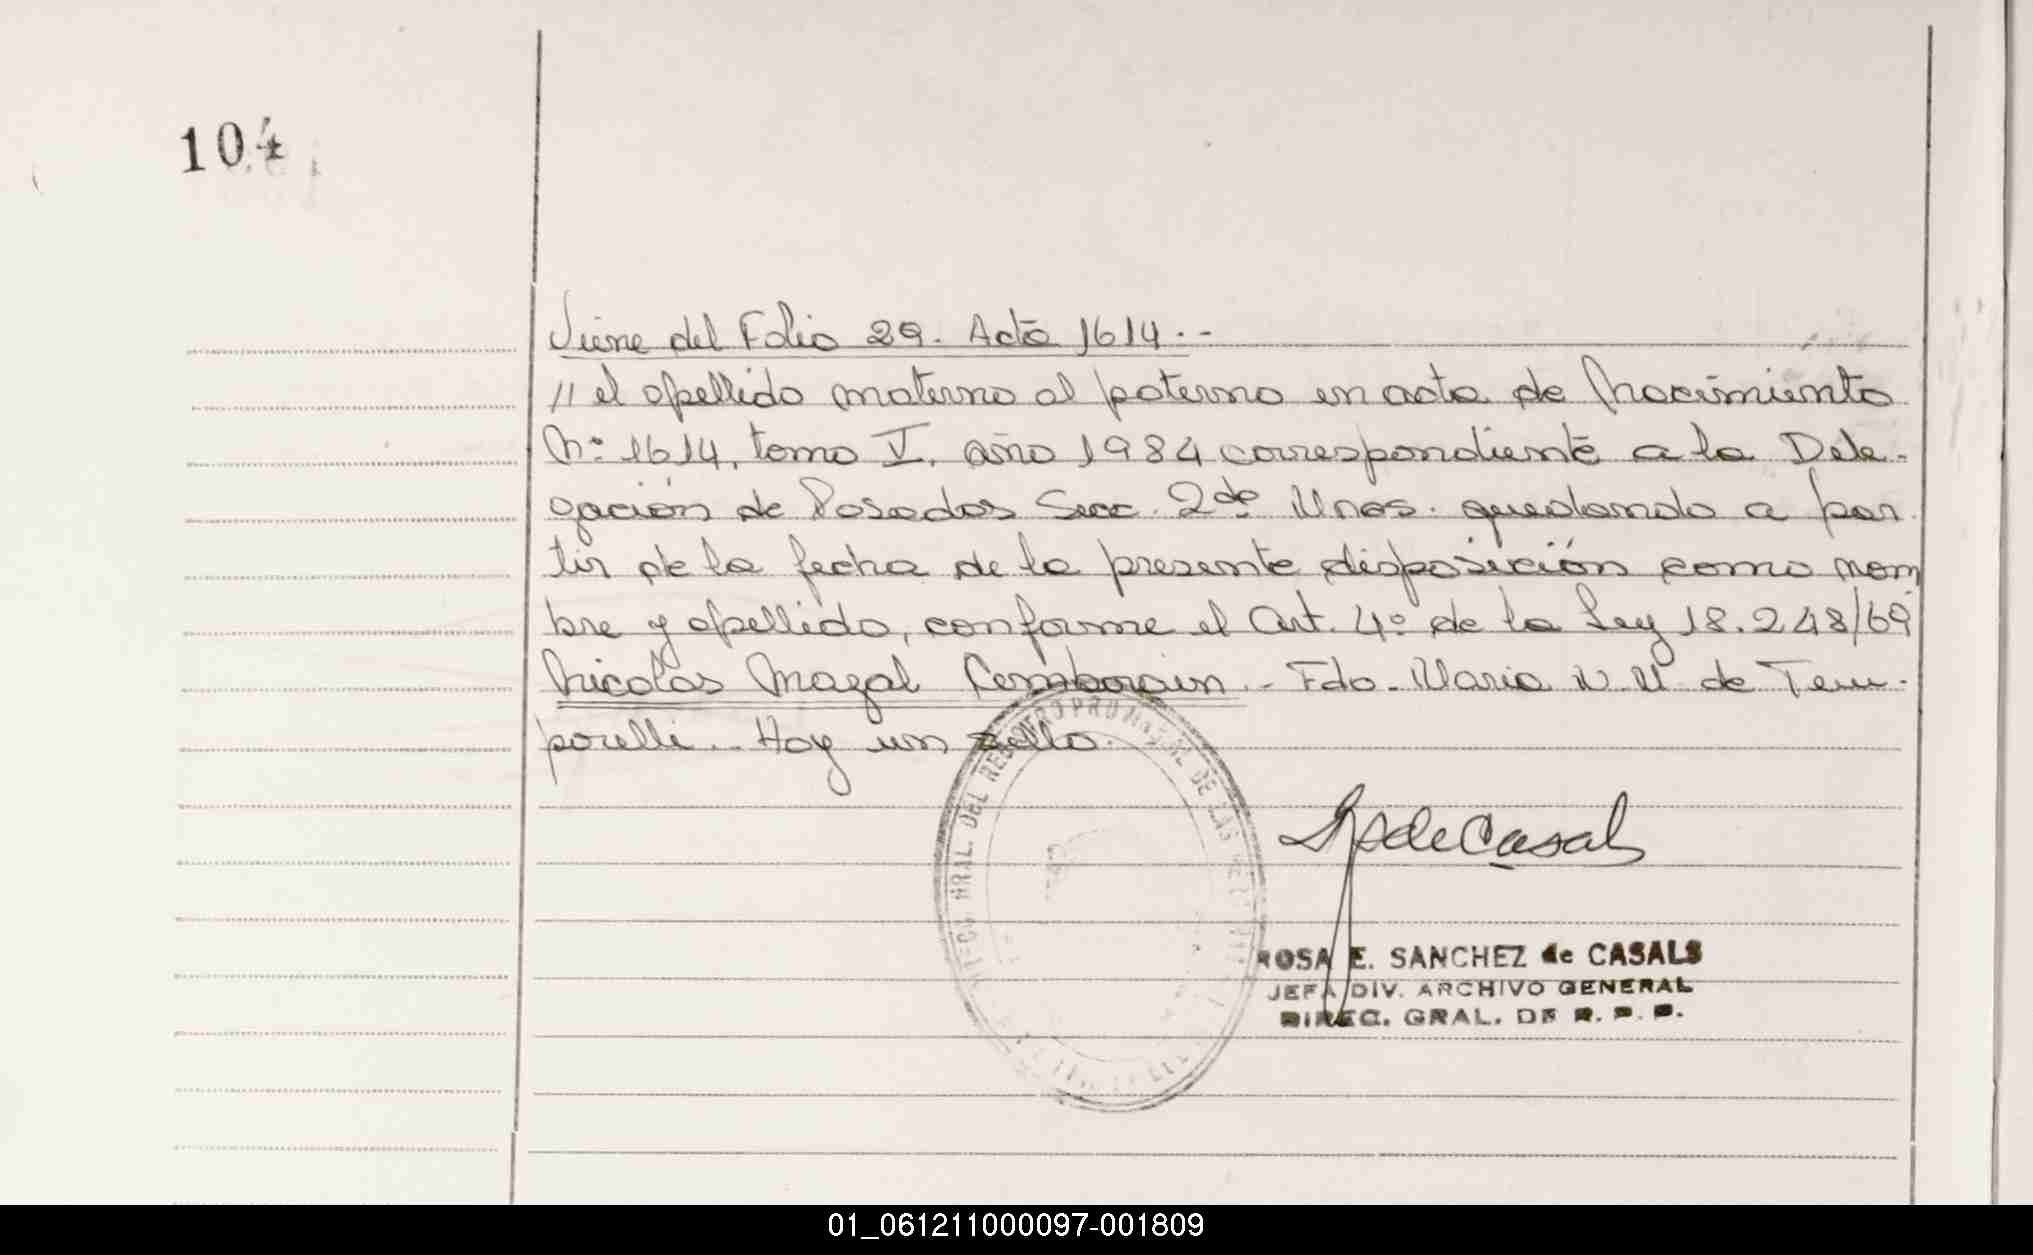 104
Viene del Folio 29. Acta 1614.-
// el apellido materno al paterno en acta de Nacimiento
Nº 1614, tomo V, año 1984 correspondiente a la Dele-
gación de Posadas Secc. 2da Mnes. quedando a par-
tir de la fecha de la presente disposición como nom
bre y apellido, conforme el Art. 4º de la Ley 18.248/69
Nicolas Mazal Cemborain.- Fdo. Maria N. M. de Tem-
porelli.- Hay un sello.
ROSA E. SANCHEZ de CASALS
JEFA DIV. ARCHIVO GENERAL
DIREC. GRAL. DE R. P. P.
01_061211000097-001809